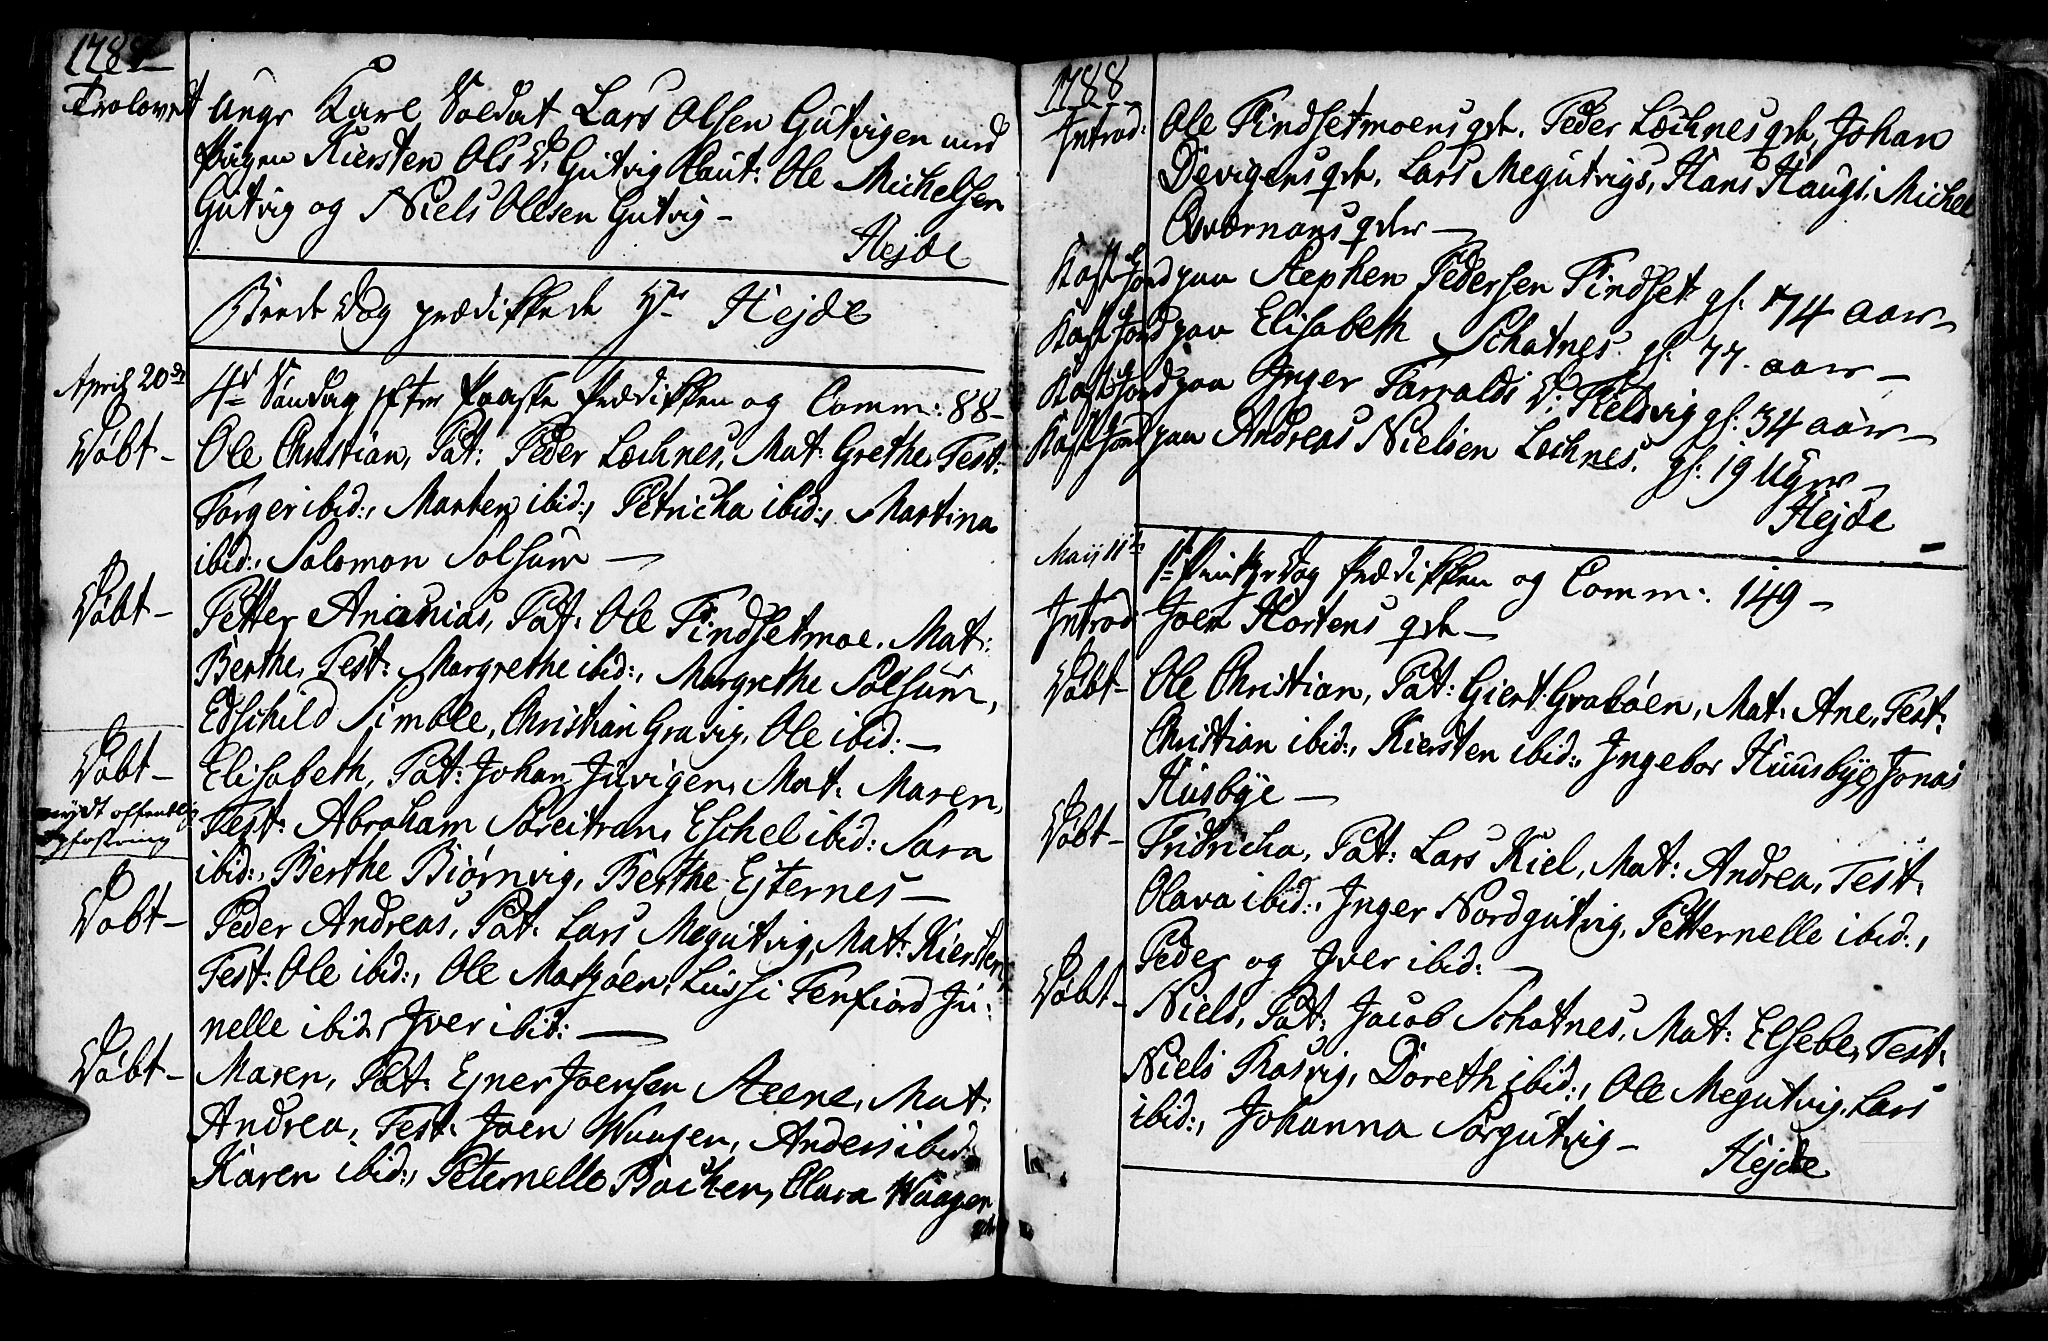 1788
Trolovet Unge Karl Soldat Lars Olsen Gutvigen med
Pigen Kiersten Ols D: Gutvig Caut: Ole Michelsen
Gutvig og Niels Olesen Gutvig —
Hejde
Beede Dag prædikkede Hr Hejde
April 20de 4de Søndag efter Paaske Prædikken og Comm: 88 —
Døbt — Ole Christian, Pat: Peder Lechnes, Mat: Grethe, Test:
Torger ibid:, Marten ibid:, Petricha ibid:, Martina
ibid:, Salomon Solsum —
Døbt — Petter Ananias, Pat: Ole Findsetmoe, Mat:
Berthe, Test: Margrethe ibid:, Margrethe Solsum,
Edschild Simble, Christian Gravig, Ole ibid: —
Døbt — Elisabeth, Pat: Johan Juvigen, Mat: Maren,
nydt offentlig Test: Abraham Søreitran, Eschel ibid: Sara
ibid:, Berthe Biørnvig, Berthe Ejternes —
Døbt — Peder Andreas, Pat: Lars Megutvig, Mat: Kiersten,
Test: Ole ibid:, Ole Marsøen, Lussi Tenfiord Ju-
nelle ibid, Iver ibid: —
Døbt — Maren, Pat: Ejner Joensen Steene, Mat:
Andrea, Test: Joen Waagen, Anders ibid:
Karen ibid:, Peternelle Bøcker, Olava Waagen
1788
Introd: Ole Findsetmoens qde, Peder Lechnes qde, Johan
Devigens qde, Lars Megutvigs, Hans Haugs, Michel
Qværnøns qder —
Kast Jord paa Stephen Pedersen Findset gl: 74 aar —
Kast Jord paa Elisabeth Schotnes gl: 77 aar —
Kast Jord paa Inger Tarralds D: Kielsvig gl: 34 aar —
Kast Jord paa Andreas Nielsen Lechnes, gl: 19 Uger —
Hejde
Maij 11te 1te Pintzedag Prædikken og Comm: 149 —
Introd: Joen Hortens qde —
Døbt — Ole Christian, Pat: Giert Grosøen, Mat: Ane, Test:
Christian ibid:, Kiersten ibid:, Ingebor Huusbye, Jonas
Husbye —
Døbt — Fridricha, Pat: Lars Kiel, Mat: Andrea, Test:
Olava ibid:, Inger Nordgutvig, Petternelle ibid:,
Peder og Iver ibid: —
Døbt — Niels, Pat: Jacob Schotnes, Mat: Elsebe, Test:
Niels Rosvig, Doreth ibid:, Ole Megutvig, Lars
ibid:, Johanna Sørgutvig —
Hejde